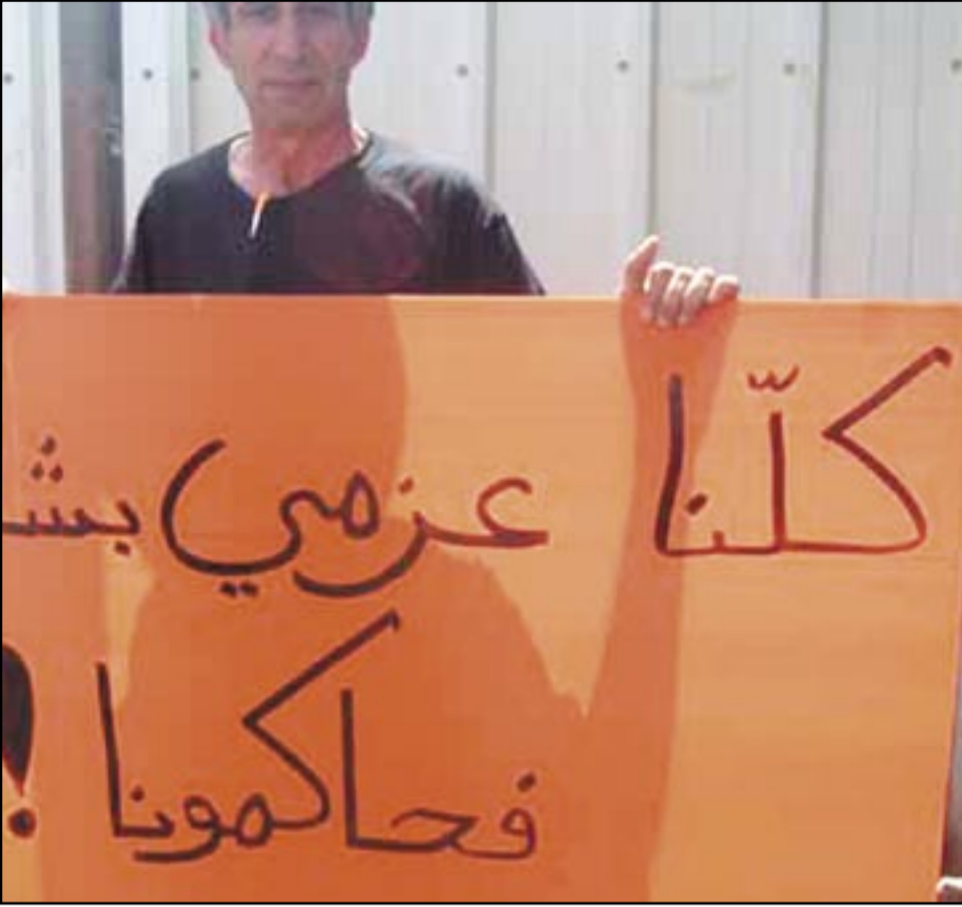 كلّنا عزمي بش
فحاكمونا!